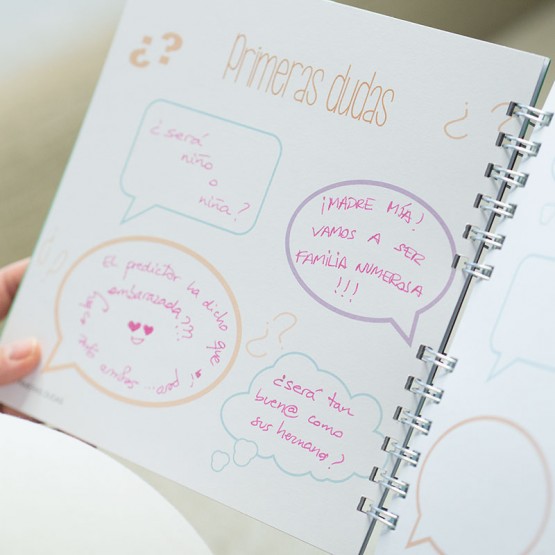 ¿?
Primeras dudas
¿será
niño
o
niña?
¡MADRE MÍA!
VAMOS A SER
FAMILIA NUMEROSA
!!!
El predictor ha dicho que
embarazada???
pero...
¿?
¿será tan
buen@ como
sus herman@s?